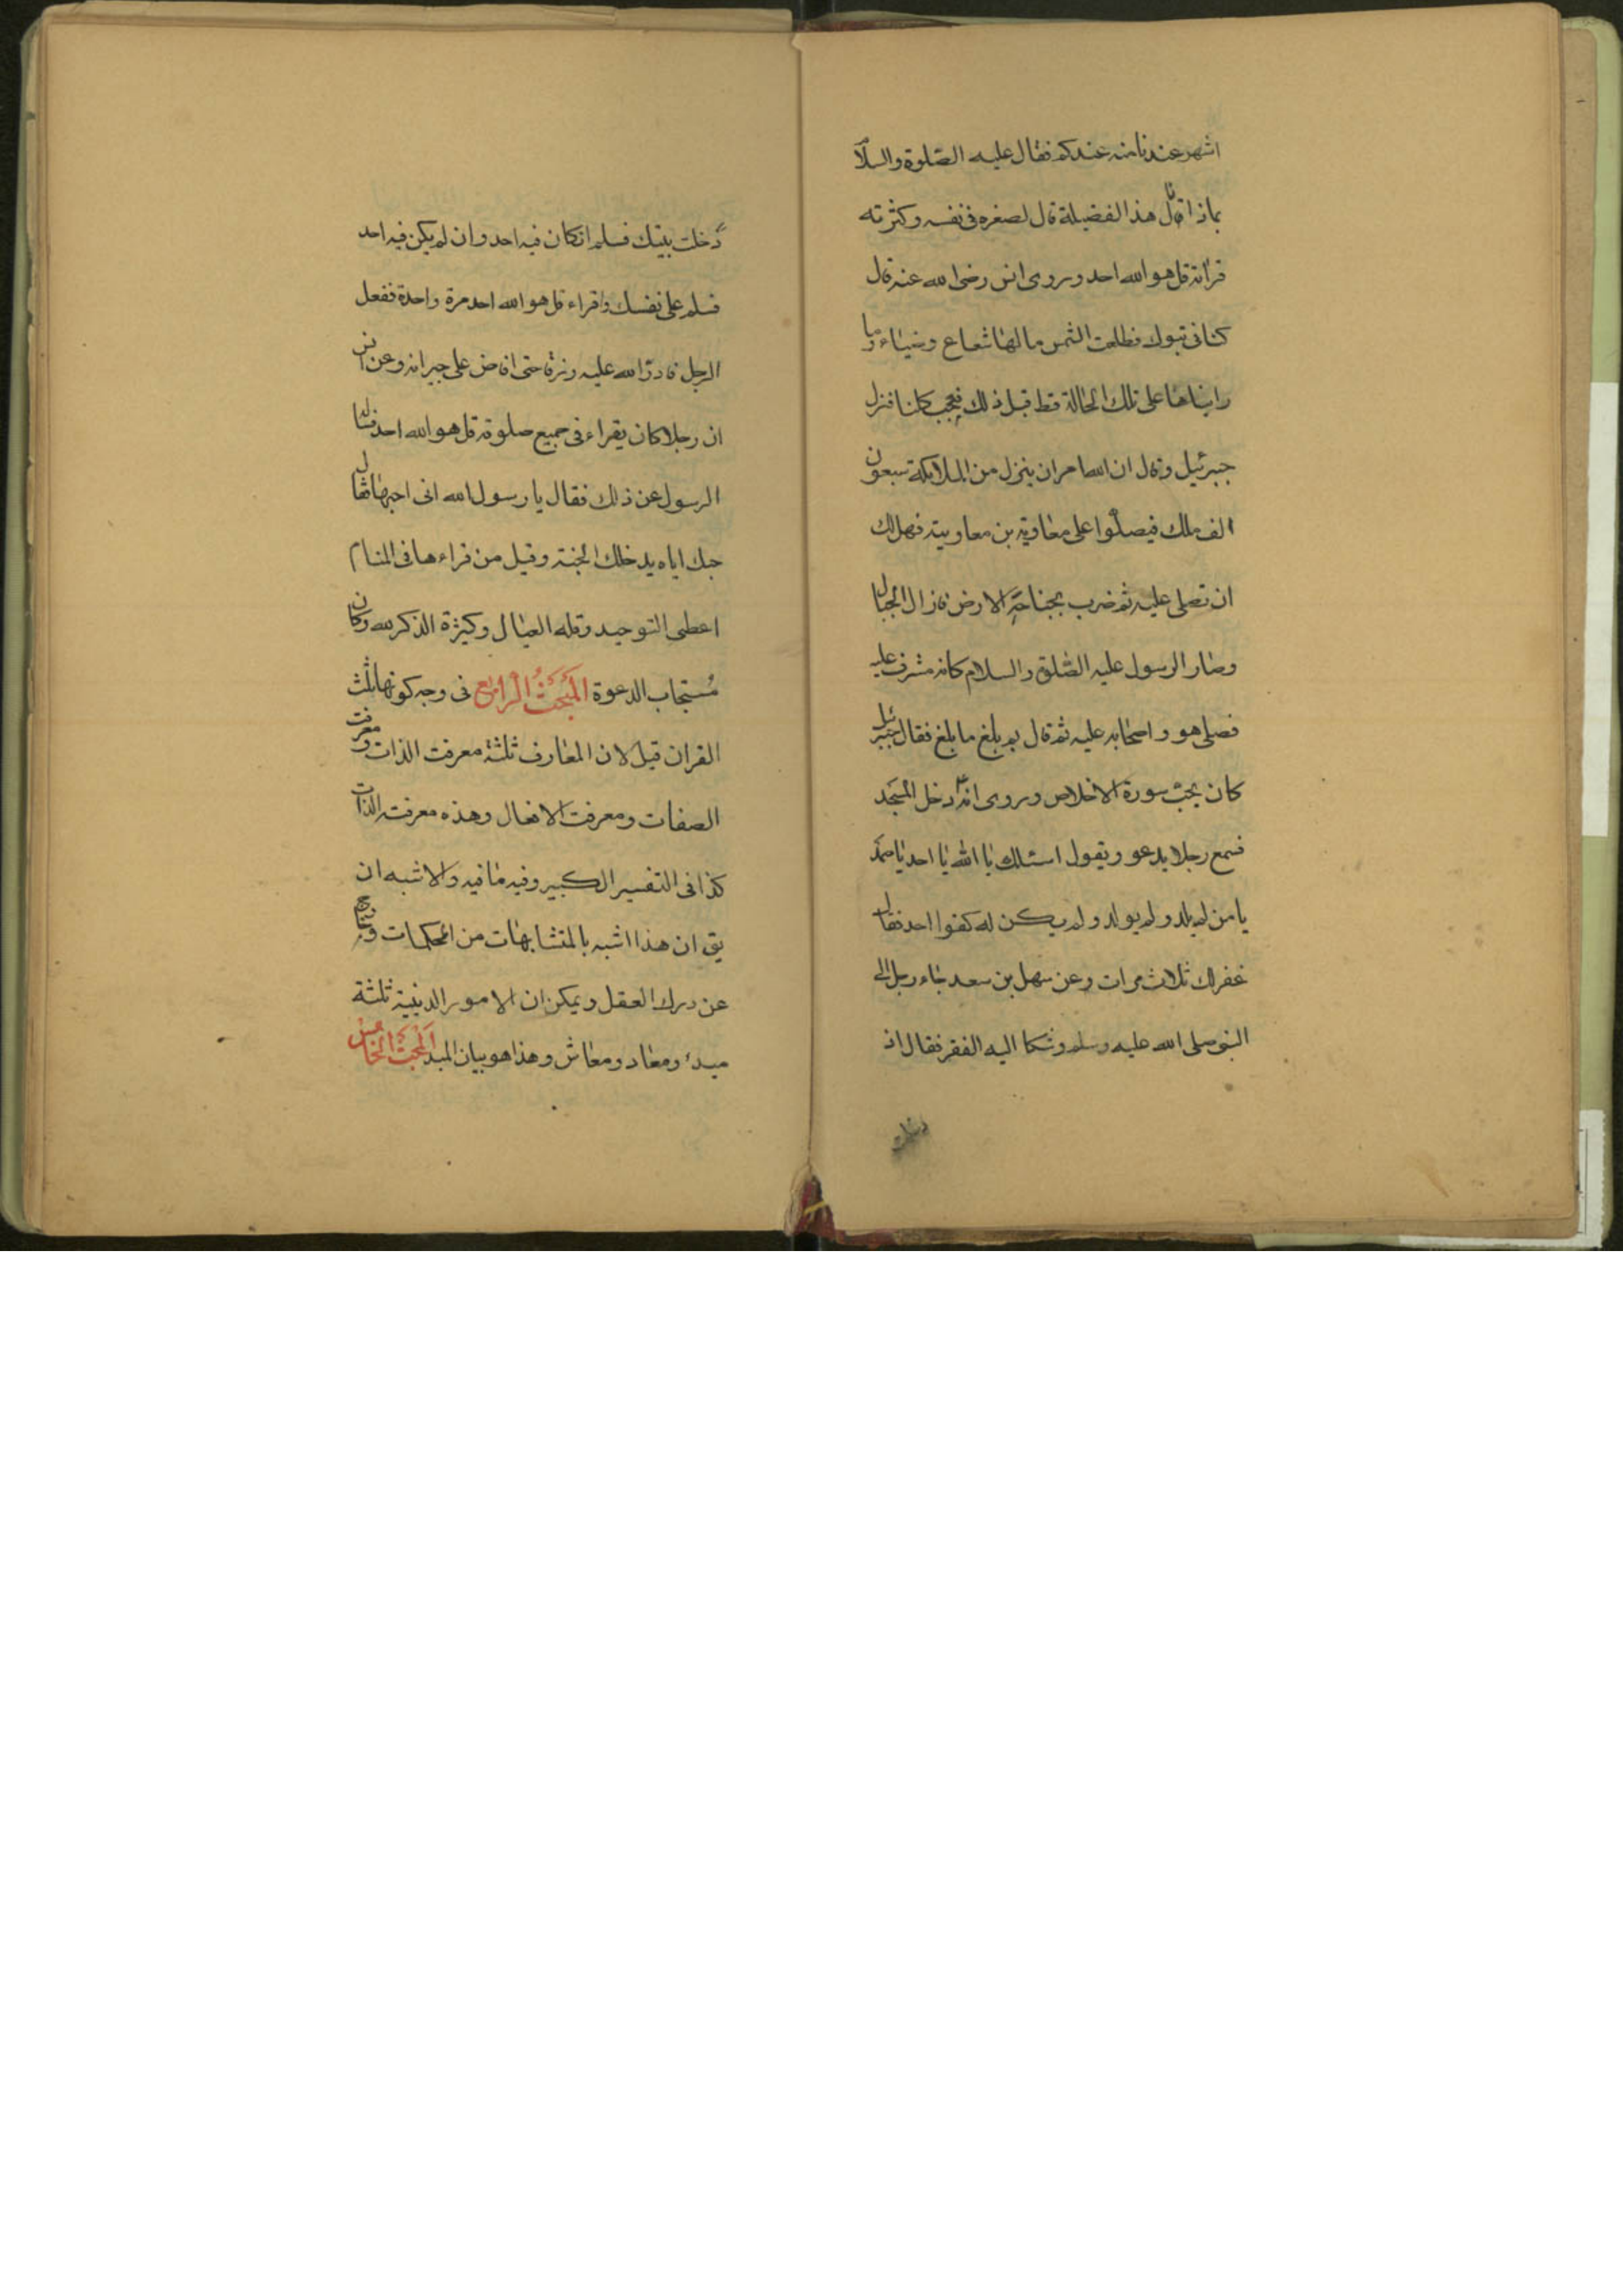 اشهر عندنا منه عندكم فقال عليه الصلوة والسلام
بماذا نال هذا الفضيلة قال لصغره فى نفسه وكثرته
قرائة قل هو الله احد وروى انس رضى الله عنه قال
كنا فى تبوك فطلعت الشمس مالها شعاع وضياء وما
رايناها على تلك الحالة قط قبل ذلك فعجب كلنا فنزل
جبرئيل وقال ان الله امر ان ينزل من الملايكة سبعون
الف ملك فيصلوا على معاوية بن معاوية فهل لك
ان تصلى عليه ثم ضرب بجناحه الارض فازال الجبال
وصار الرسول عليه الصلوة والسلام كانه مشرف عليه
فصلى هو واصحابه عليه ثم قال بم بلغ ما بلغ فقال جبرئيل
كان يحب سورة الاخلاص وروى انه دخل المسجد
فسمع رجلا يدعو ويقول اسئلك يا الله يا احد يا صمد
يا من لم يلد ولم يولد ولم يكن له كفوا احد فقال
غفر لك ثلاث مرات وعن سهل بن سعد جاء رجل الى
النبى صلى الله عليه وسلم وشكا اليه الفقر فقال اذ
دخلت
دخلت بيتك فسلم ان كان فيه احد وان لم يكن فيه احد
فسلم على نفسك واقراء قل هو الله احد مرة واحدة ففعل
الرجل فادر الله عليه رزقا حتى افاض على جيرانه وعن انس
ان رجلا كان يقراء فى جميع صلوته قل هو الله احد فساله
الرسول عن ذلك فقال يا رسول الله انى احبها فقال
حبك اياه يدخلك الجنة وقيل من قراءها فى المنام
اعطى التوحيد وقله العيال وكيثرة الذكر لله وكان
مستجاب الدعوة المبحث الرابع فى وجه كونها ثلث
القران قيل لان المعارف ثلثة معرفت الذات ومعرفت
الصفات ومعرفت الافعال وهذه معرفت الذات
كذا فى التفسير الكبير وفيه ما فيه والاشبه ان
يق ان هذا اشبه بالمتشابهات من المحكمات
عن درك العقل ويمكن ان الامور الدينية ثلثة
مبدء ومعاد ومعاش وهذا هو بيان المبد المبحث الخامس